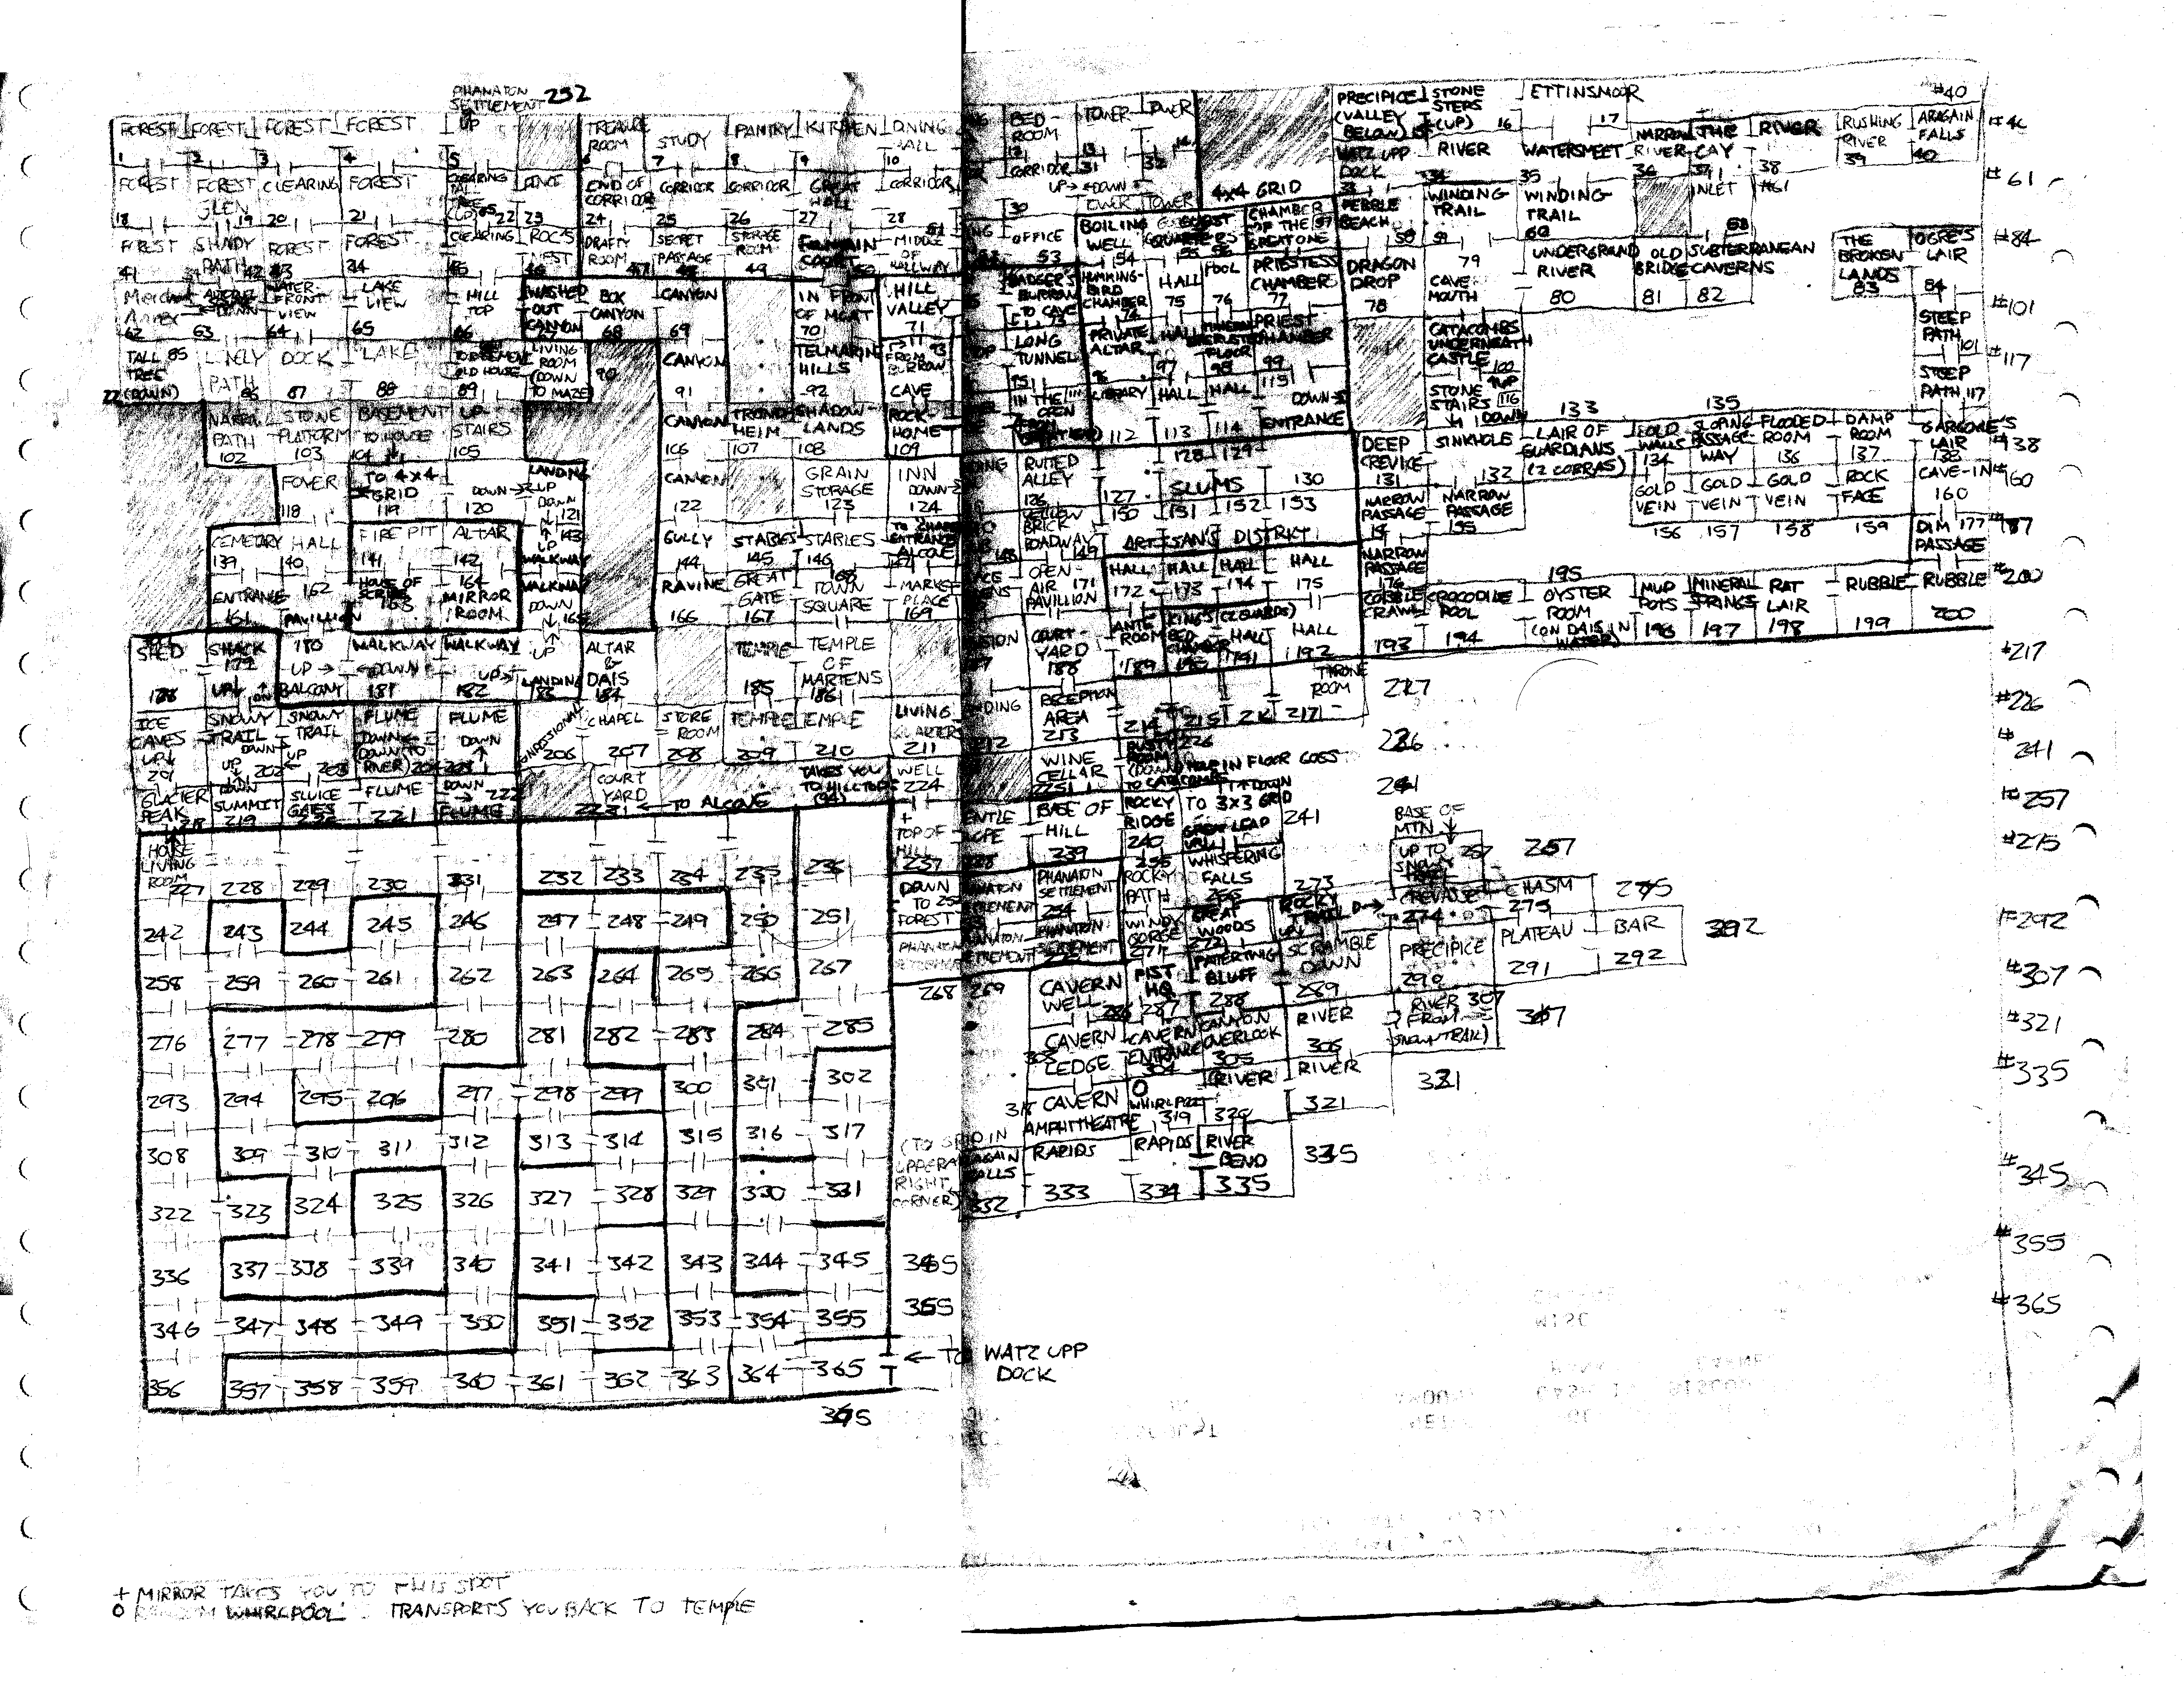 PHANATON
SETTLEMENT 252
FOREST FOREST FOREST FOREST UP
1 2 3 4 5
TREASURE ROOM STUDY PANTRY KITCHEN DINING HALL
6 7 8 9 10
BED-ROOM TOWER TOWER
12 13 14
PRECIPICE (VALLEY BELOW) 15 STONE STEPS (UP) 16 ETTINSMOOR 17
#40
FOREST FOREST GLEN CLEARING FOREST
18 19 20 21 22 23
END OF CORRIDOR CORRIDOR CORRIDOR GREAT HALL CORRIDOR
24 25 26 27 28
CORRIDOR 31 32
30 UP → ← DOWN
TOWER TOWER
4x4 GRID
WATZ UPP DOCK 33 RIVER 34 WATERSMEET 35 NARROW RIVER 36 THE CAY 37 RIVER 38 RUSHING RIVER 39 ARAGAIN FALLS 40
#61
FOREST SHADY PATH FOREST FOREST CLEARING ROC'S NEST
41 42 43 44 45 46
DRAFTY ROOM SECRET PASSAGE STORAGE ROOM FOUNTAIN COURT MIDDLE OF HALLWAY
47 48 49 50 51
OFFICE 53 BOILING WELL 54 GUEST QUARTERS 55 56 CHAMBER OF THE GREAT ONE 57
PEBBLE BEACH 58 WINDING TRAIL 59 WINDING TRAIL 60 INLET #61
#84
62 63 WATER-FRONT VIEW 64 LAKE VIEW 65 HILL TOP 66 WASHED OUT CANYON 67 BOX CANYON 68 CANYON 69
IN FRONT OF MOAT 70 HILL VALLEY 71
BADGER'S BURROW TO CAVE 73 HUMMING-BIRD CHAMBER 74 HALL 75 POOL 76 PRIESTESS CHAMBER 77
DRAGON DROP 78 CAVE MOUTH 79 UNDERGROUND RIVER 80 OLD BRIDGE 81 SUBTERRANEAN CAVERNS 82
THE BROKEN LANDS 83 OGRE'S LAIR 84
#101
TALL TREE 85 22 (DOWN) LONELY PATH 86 DOCK 87 LAKE 88 89 LIVING ROOM (DOWN TO MAZE) 90
CANYON 91 TELMARINE HILLS 92 93 FROM BURROW CAVE
LONG TUNNEL 95 PRIVATE ALTAR 96 HALL 97 98 PRIEST CHAMBER 99
CATACOMBS UNDERNEATH CASTLE 100 STEEP PATH 101
#117
NARROW PATH 102 STONE PLATFORM 103 BASEMENT TO HOUSE 104 UP-STAIRS 105
CANYON 106 TRONDHEIM 107 SHADOW-LANDS 108 ROCK-HOME 109
IN THE OPEN 111 LIBRARY 112 HALL 113 HALL 114 115 DOWN ENTRANCE
STONE STAIRS 116 DOWN STEEP PATH 117
#138
FOYER 118 TO 4x4 GRID 119 DOWN → 120 LANDING UP DOWN 121
CANYON 122 GRAIN STORAGE 123 INN DOWN 124
RUTTED ALLEY 126 127 SLUMS 128 129 130
DEEP CREVICE 131 SINKHOLE 132 LAIR OF GUARDIANS (2 COBRAS) 133 GOLD WALLS 134 SLOPING PASSAGE-WAY 135 FLOODED ROOM 136 DAMP ROOM 137 GARGOYLE'S LAIR 138
#160
CEMETARY 139 HALL 140 FIRE PIT 141 ALTAR 142 UP 143 WALKWAY
GULLY 144 STABLES 145 STABLES 146
YELLOW BRICK ROADWAY 149 150 151 152 153 ARTISAN'S DISTRICT
NARROW PASSAGE 154 NARROW PASSAGE 155 GOLD VEIN 156 GOLD VEIN 157 GOLD VEIN 158 ROCK FACE 159 CAVE-IN 160
#187
ENTRANCE 161 162 PAVILLION 163 164 MIRROR ROOM WALKWAY DOWN 165
RAVINE 166 GREAT GATE 167 TOWN SQUARE 168 MARKET PLACE 169
OPEN-AIR PAVILLION 171 HALL 172 HALL 173 HALL 174 HALL 175
NARROW PASSAGE 176 DIM PASSAGE 177
#200
SHED 178 SHACK 179 180 BALCONY WALKWAY 181 WALKWAY 182 UP LANDING 183 ALTAR & DAIS 184
UP → ← DOWN UP →
TEMPLE 185 TEMPLE OF MARTENS 186
COURT-YARD 188 ANTE ROOM 189 KING'S BED CHAMBER 190 (GUARDS) HALL 191 HALL 192
COBBLE CRAWL 193 CROCODILE POOL 194 OYSTER ROOM (ON DAIS IN WATER) 195 MUD POTS 196 MINERAL SPRINGS 197 RAT LAIR 198 RUBBLE 199 RUBBLE 200
#217
ICE CAVES UP 201 SNOWY TRAIL DOWN UP 202 SNOWY TRAIL UP 203 FLUME DOWN (DOWN TO RIVER) 204 FLUME DOWN 205
206 CHAPEL 207 STORE ROOM 208 TEMPLE 209 TEMPLE 210 LIVING QUARTERS 211
212 RECEPTION AREA 213 214 215 216 217 THRONE ROOM 217
#226
GLACIER PEAK 218 SUMMIT 219 SLUICE GATES 220 FLUME 221 DOWN → FLUME 222 COURT YARD 223 ← TO ALCOVE
TAKES YOU TO HILLTOP (94) WELL 224 WINE CELLAR 225 DUSTY ROOM (DOWN TO CATACOMBS) 226 HOLE IN FLOOR GOES 226
#241
HOUSE LIVING ROOM 227 228 229 230 231 232 233 234 235 236
+ TOP OF HILL 237 238 BASE OF HILL 239 ROCKY RIDGE 240 TO 3x3 GRID 241 241
#257
242 243 244 245 246 247 248 249 250 251
DOWN TO FOREST PHANATON SETTLEMENT 254 ROCKY PATH 255 WHISPERING FALLS 256 BASE OF MTN UP TO SNOWY 257 257
#275
258 259 260 261 262 263 264 265 266 267
268 269 WINDY GORGE 271 GREAT WOODS 272 ROCKY TRAIL 273 CREVASSE 274 CHASM 275 275
#292
276 277 278 279 280 281 282 283 284 285
CAVERN WELL 286 FIST HQ 287 PATERTING BLUFF 288 SCRAMBLE DOWN 289 PRECIPICE 290 PLATEAU 291 BAR 292 292
#307
293 294 295 296 297 298 299 300 301 302
CAVERN LEDGE 303 CAVERN ENTRANCE 304 CANYON OVERLOOK 305 RIVER 306 RIVER 307 (FROM SNOW TRAIL) 307
#321
308 309 310 311 312 313 314 315 316 317
CAVERN AMPHITHEATRE 318 O WHIRLPOOL 319 RIVER 320 RIVER 321 321
#335
322 323 324 325 326 327 328 329 330 331
(TO GRID IN UPPER RIGHT CORNER) ARAGAIN FALLS 332 RAPIDS 333 RAPIDS 334 RIVER BEND 335 335
#345
336 337 338 339 340 341 342 343 344 345 345
#355
346 347 348 349 350 351 352 353 354 355 355
#365
356 357 358 359 360 361 362 363 364 365
← TO WATZ UPP
DOCK
365
+ MIRROR TAKES YOU TO THIS SPOT
O RANDOM WHIRLPOOL. TRANSPORTS YOU BACK TO TEMPLE